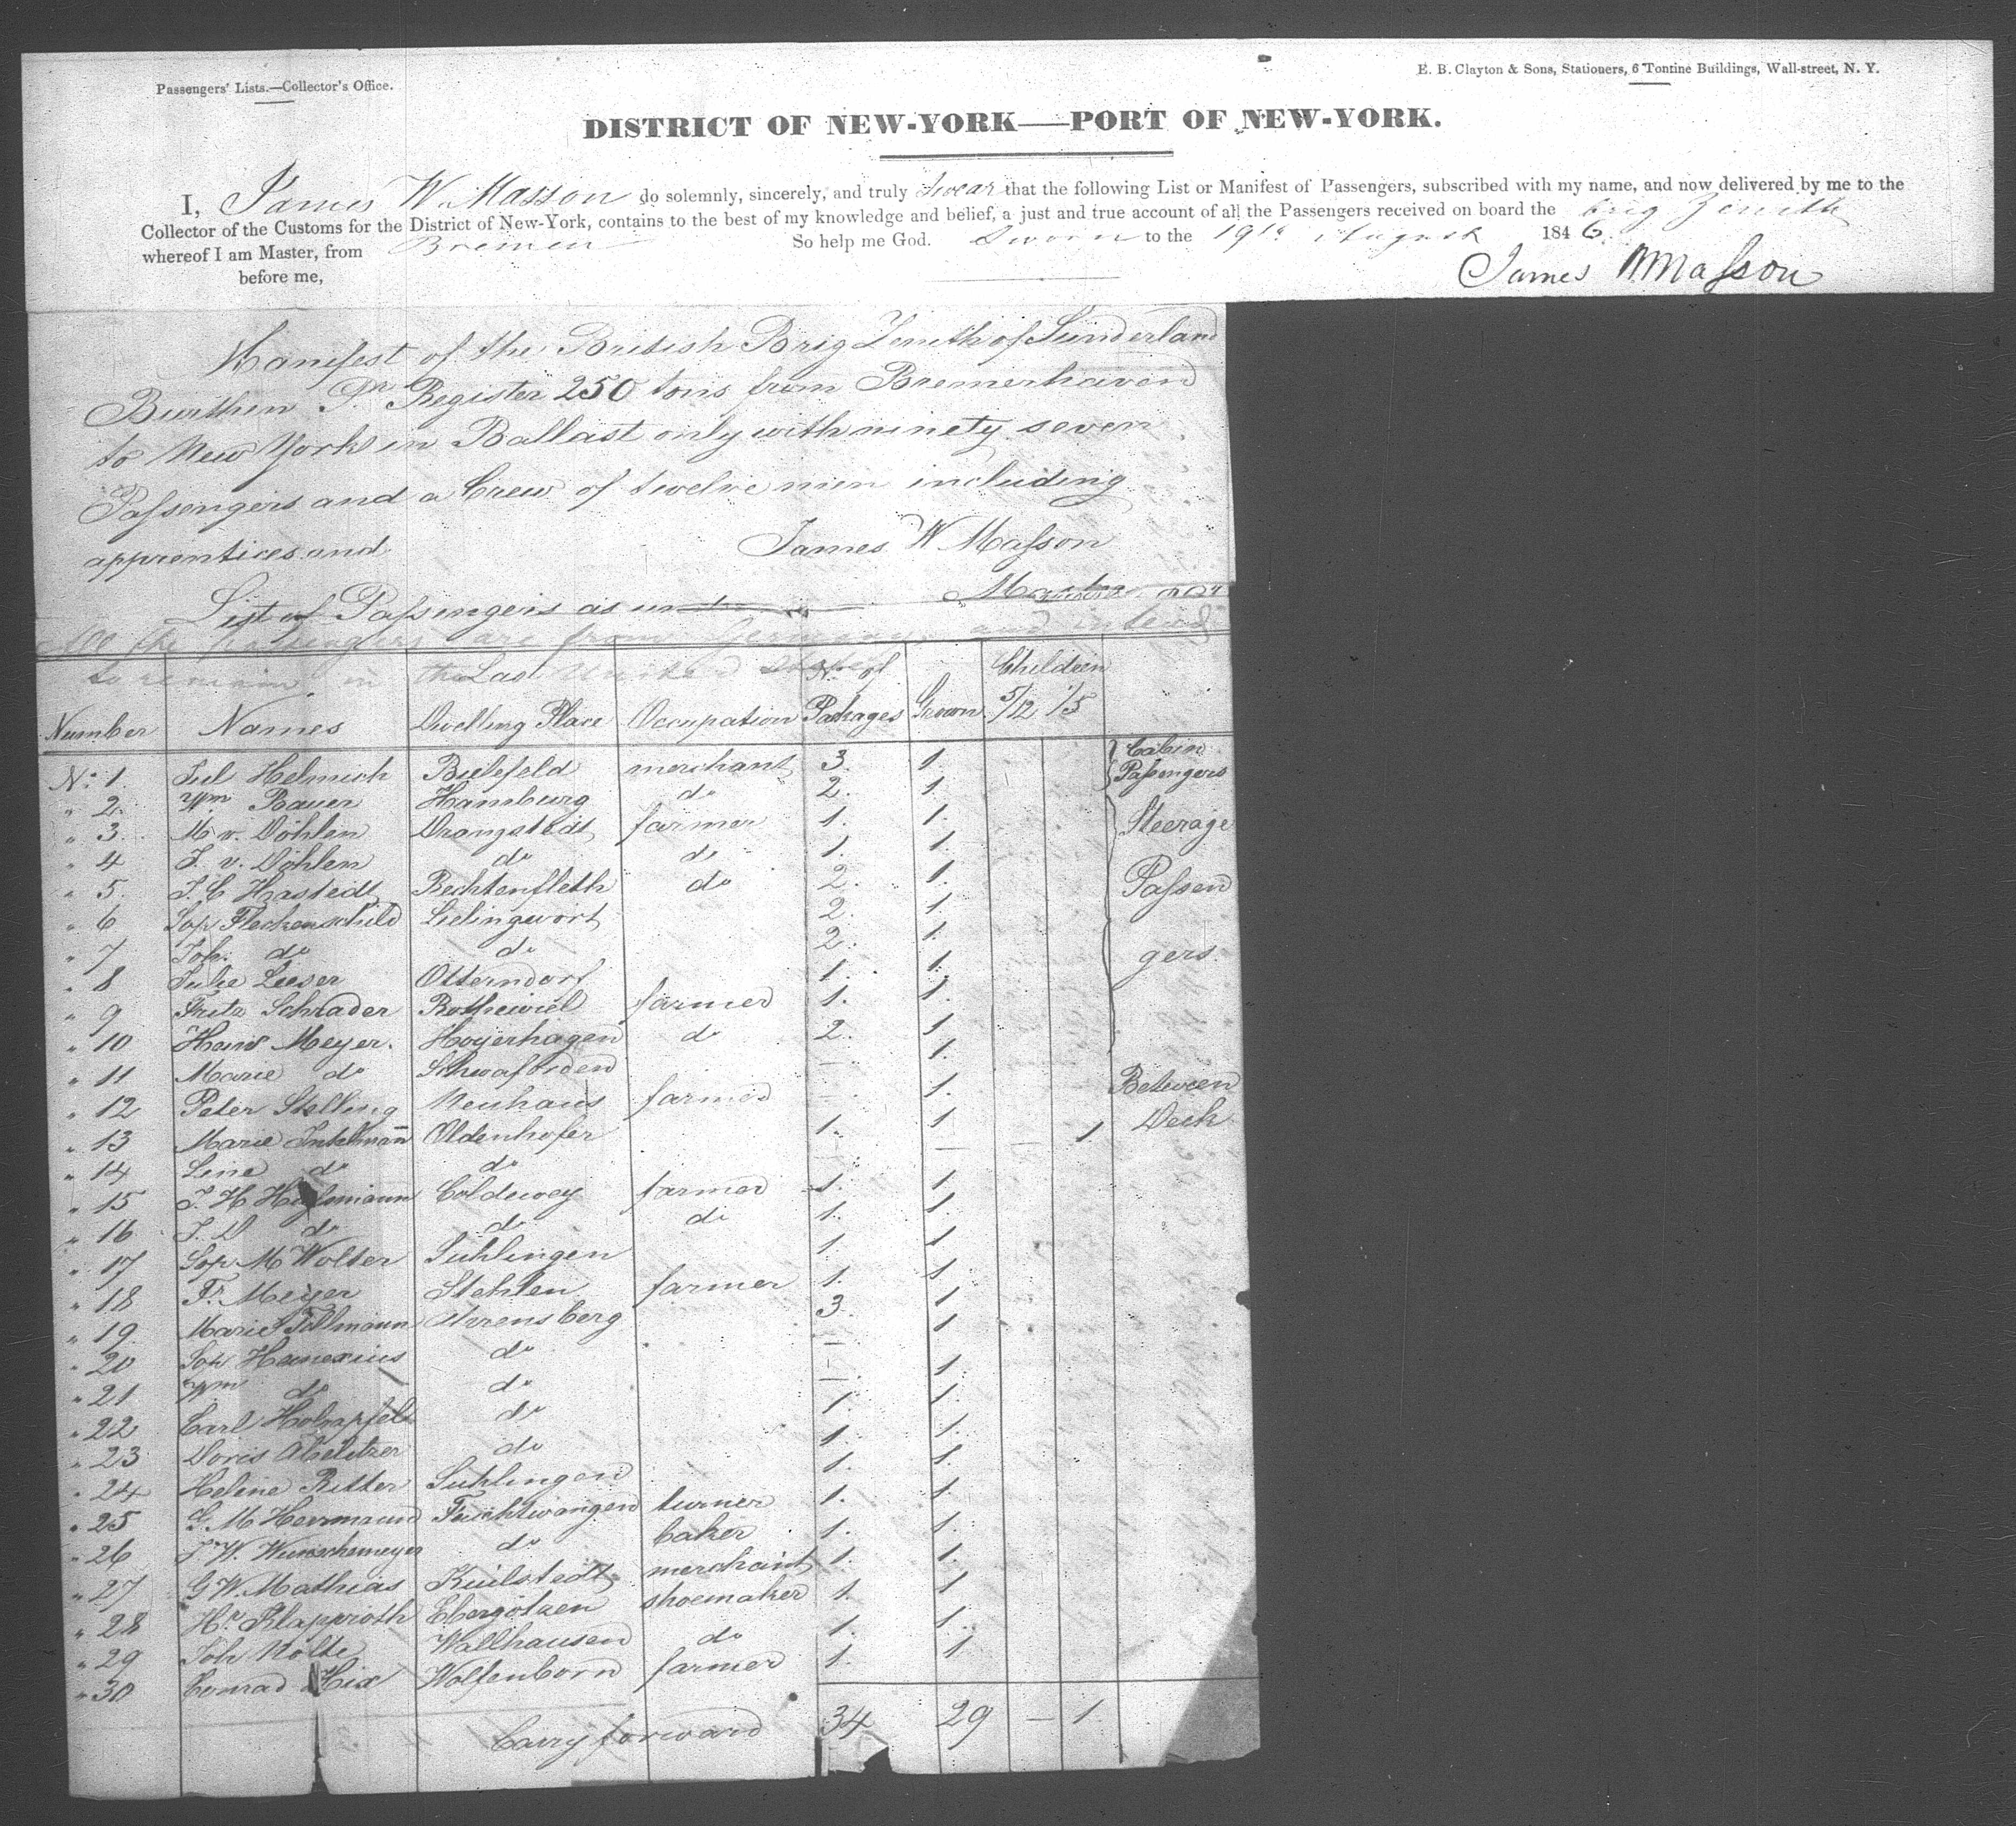 Passengers' Lists.—Collector's Office.
E. B. Clayton & Sons, Stationers, 6 Tontine Buildings, Wall-street, N. Y.
DISTRICT OF NEW-YORK—PORT OF NEW-YORK.
I, James W. Masson do solemnly, sincerely, and truly swear that the following List or Manifest of Passengers, subscribed with my name, and now delivered by me to the
Collector of the Customs for the District of New-York, contains to the best of my knowledge and belief, a just and true account of all the Passengers received on board the brig Zenith
whereof I am Master, from Bremen So help me God. Sworn to the 19th August 1846.
before me, James W Masson
Manifest of the British Brig Zenith of Sunderland
Burthen Pr Register 250 tons from Bremerhaven
to New York in Ballast only with ninety seven
Passengers and a Crew of twelve men including
apprentices and James W Masson
Master
List of Passengers as under
All the passengers are from Germany and intend
to remain in the United States
Number Names Last Dwelling Place Occupation No. of Packages Grown Children 5/12 1/5
No. 1. Jul Helmich Bielefeld merchant 3. 1. Cabin Passengers
" 2. Wm Bauer Hamburg do 2. 1.
" 3. M v. Döhlen Drangstedt farmer 1. 1. Steerage
" 4 J. v. Döhlen do do 1. 1.
" 5. J. C Hastedt Rechtenfleth do 2. 1. Passen
" 6 Sop Fleckenschild 2. 1.
" 7 Joh. do do 2. 1. gers.
" 8 Julie Leeser Otterndorf 1. 1.
" 9 Fritz Schrader farmer 1. 1.
" 10 Hans Meyer. Hoyerhagen do 2. 1.
" 11 Marie do Schwaförden — 1.
" 12 Peter Stelling Neuhaus farmer — 1. Between
" 13 Marie Oldenhofer 1. 1 Deck
" 14 Lene do do — — — 1.
" 15 J. H Coldewey farmer 1. 1.
" 16 J. D do do do 1. 1.
" 17 Sop M Wolter Suhlingen 1. 1
" 18 Fr. Meyer Stehlen farmer 1. 1
" 19 Marie Tillmann Ahrensberg 3. 1
" 20 Sop do — 1
" 21 Wm do do — 1.
" 22 Carl Holzapfel do 1. 1.
" 23 Doris do 1. 1.
" 24 Helene Ritter Suhlingen 1. 1.
" 25 G. M Herrmann Feuchtwangen turner 1. 1.
" 26 J W. Wunschemeyer do baker 1. 1.
" 27 G W. Mathias Küllstedt merchant 1. 1.
" 28 Hr. Klapproth Ebergötzen shoemaker 1. 1
" 29 Joh Nolte Wallhausen do 1. 1.
" 30 Conrad Hix Wolfenborn farmer 1. 1.
Carry forward 34 29 — 1.